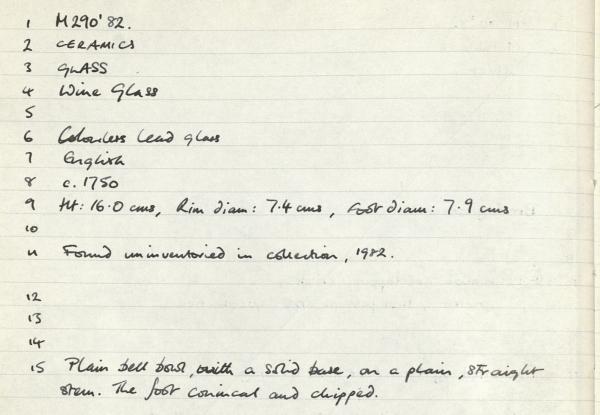 1 M290'82.
2 CERAMICS
3 GLASS
4 Wine Glass
5
6 Colourless lead glass
7 English
8 c. 1750
9 Ht: 16.0 cms, Rim diam: 7.4 cms, foot diam: 7.9 cms
10
11 Found uninventoried in collection, 1982.
12
13
14
15 Plain bell bowl, with a solid base, on a plain, straight
stem. The foot conincal and chipped.